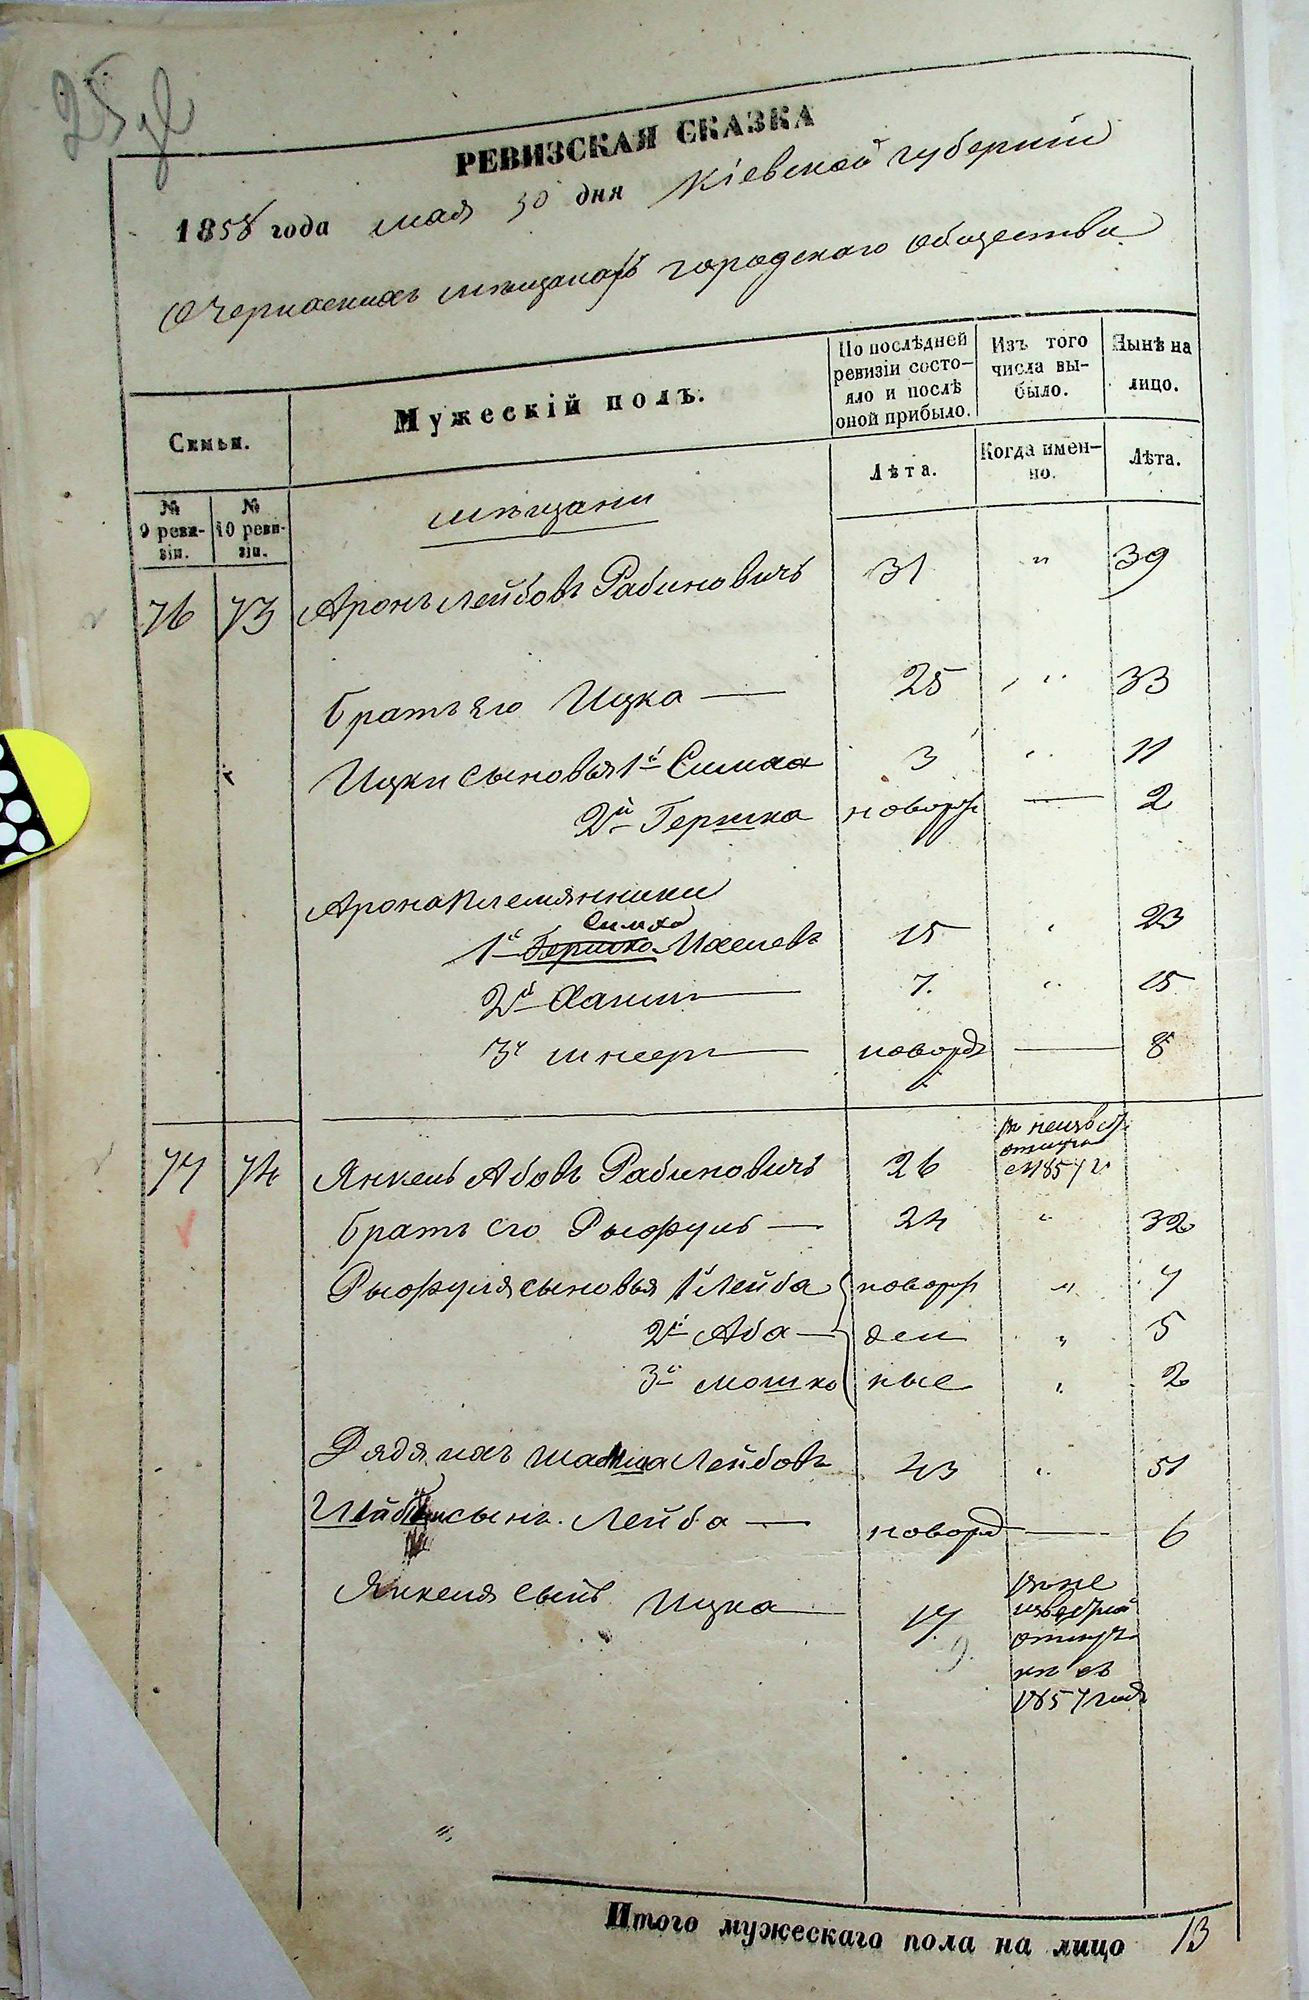 РЕВИЗСКАЯ СКАЗКА
1858 года мая 30 дня Кіевской губерніи
О Черкаскихъ мѣщанахъ городскаго общества
Семьи.
Мужескій полъ.
По послѣдней ревизіи состо-
яло и послѣ
оной прибыло.
Изъ того
числа вы-
было.
Нынѣ на
лицо.
№ 9 реви-
зіи.
№ 10 реви-
зіи.
Лѣта.
Когда имен-
но.
Лѣта.
мѣщани
76 73 Аронъ Лейбовъ Рабиновичъ 31 " 39
братъ его Ицка — 25 " 33
Ицки сыновья 1й Симха 3 " 11
2й Гершка новорж — 2
Арона племянники
Симха
1й Гершко Мхелевъ 15 " 23
2й Хаким — 7. " 15
3й шнеер — новорд — 8
77 74 Янкель Абовъ Рабиновичъ 26 въ неизв
отлучкѣ
съ 1857 г.
братъ его Рысфуль — 24 " 32
Рысфуля сыновья 1й Лейба новорж " 7
2й Аба — ден " 5
3й мошко ные " 2
Дядя ихъ Лейбовъ 43 " 51
сынъ. Лейба — новорд — 6
Янкеля сынъ Ицка — 17. въ не
извѣстной
отлуч-
кѣ съ
1857 года
Итого мужескаго пола на лицо 13